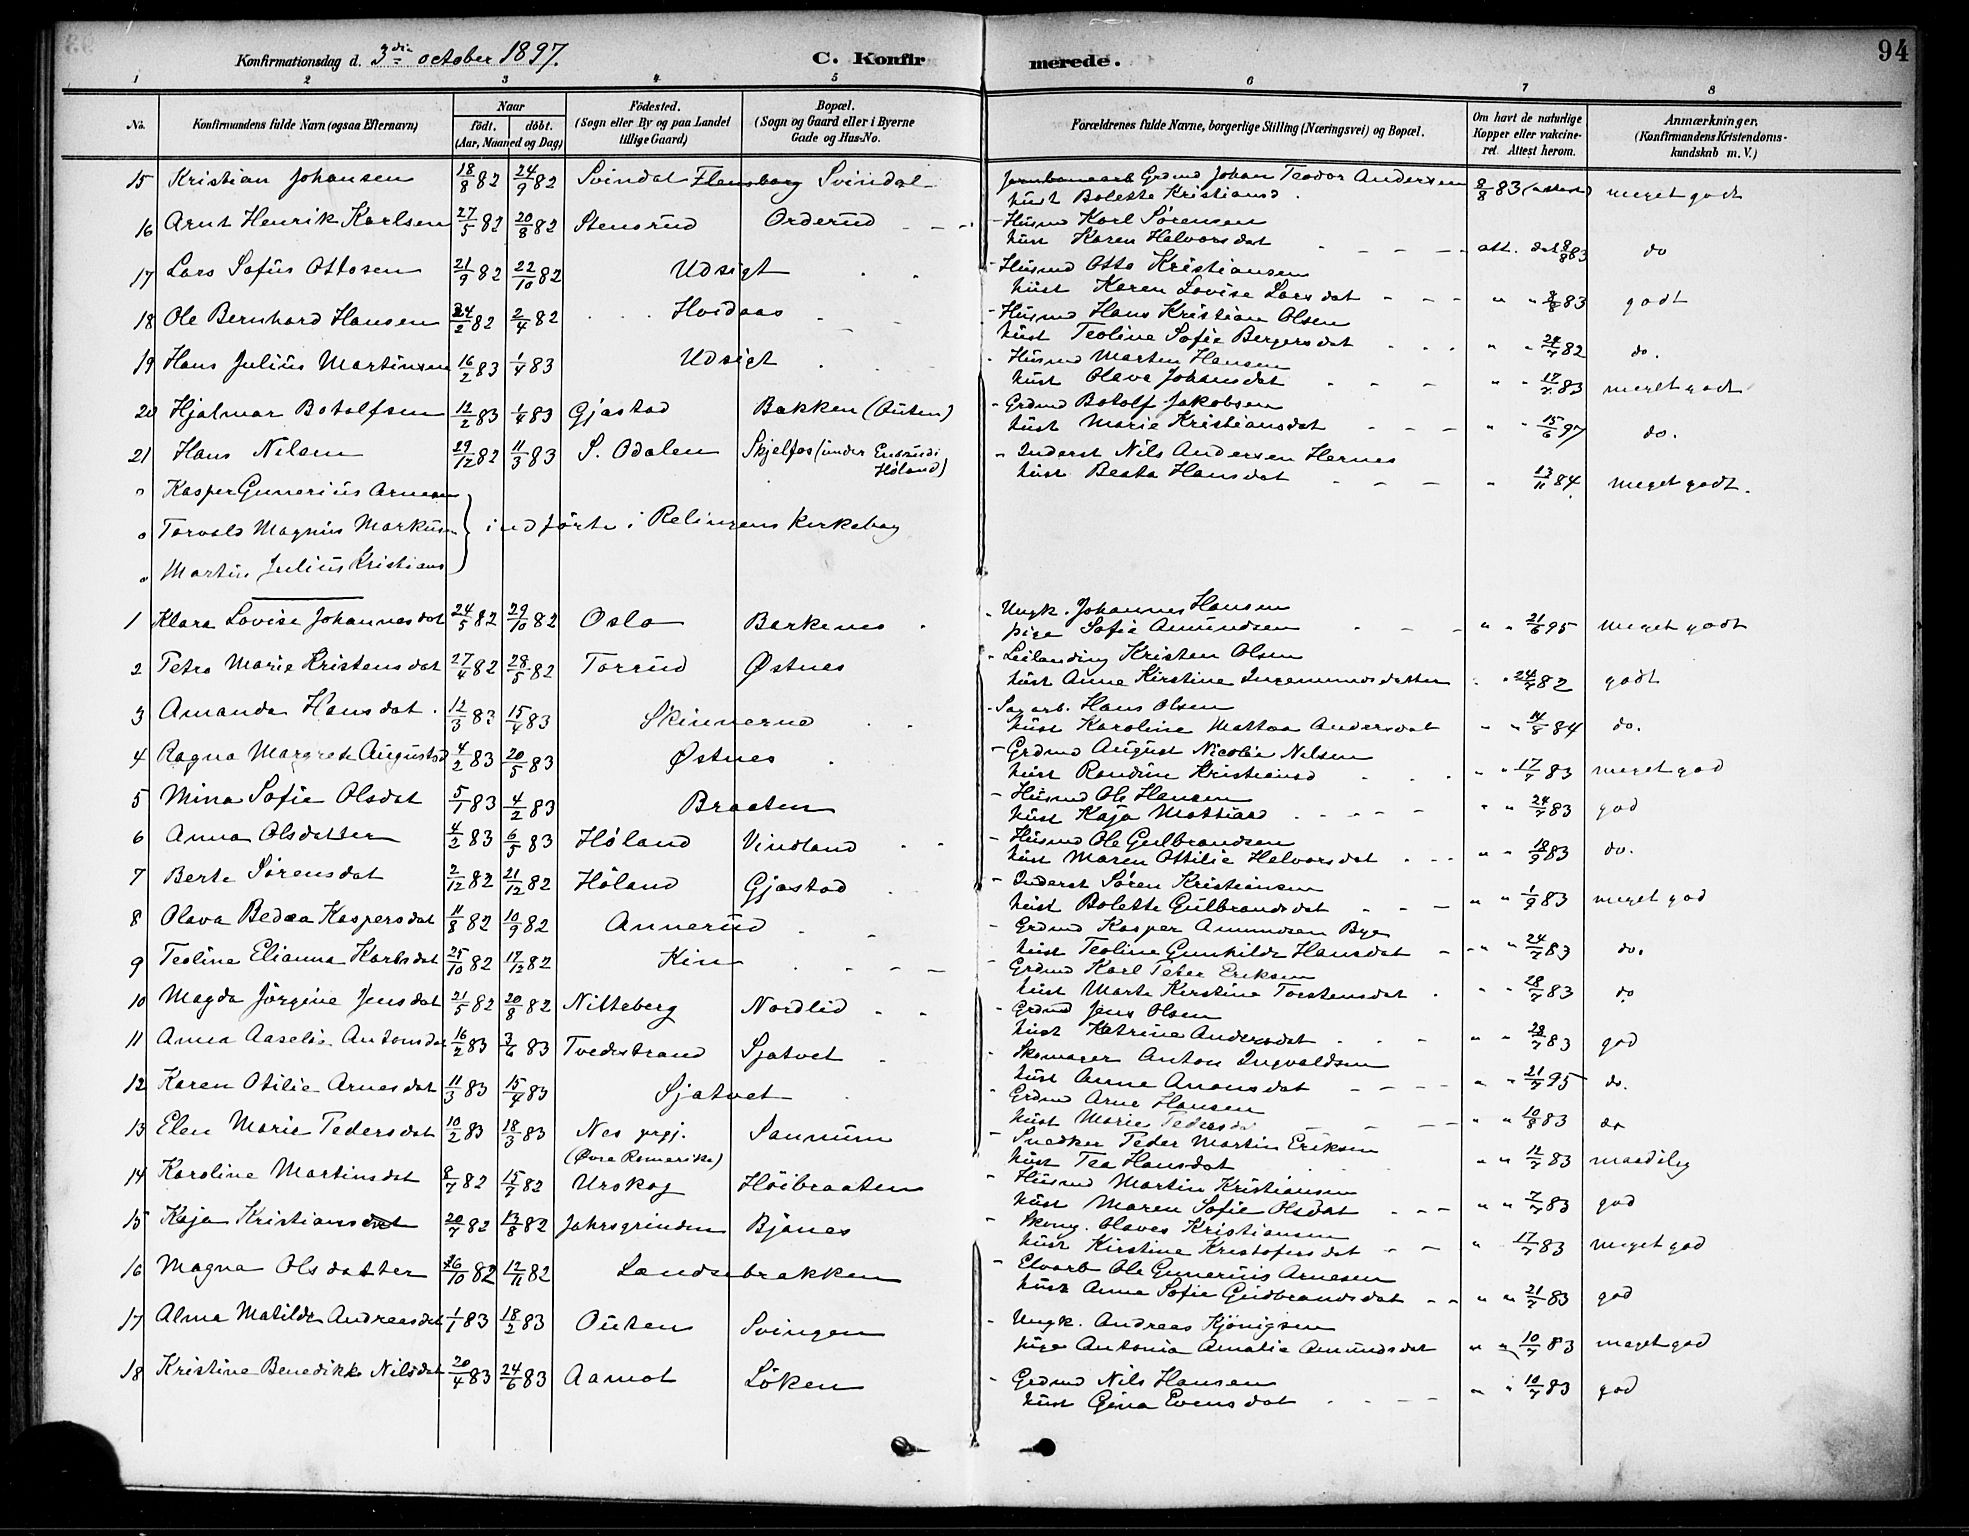 94
Konfirmationsdag d. 3die october 1897.
C. Konfirmerede.
1 2 3 4 5 6 7 8
No. Konfirmandens fulde Navn (ogsaa Efternavn) Naar födt. döbt. (Aar, Maaned og Dag) Födested. (Sogn eller By og paa Landet tillige Gaard) Bopæl. (Sogn og Gaard eller i Byerne Gade og Hus-No. Forældrenes fulde Navne, borgerlige Stilling (Næringsvei) og Bopæl. Om havt de naturlige Kopper eller vakcineret. Attest herom. Anmærkninger. (Konfirmandens Kristendomskundskab m. V.)
15 Kristian Johansen 18/8 82 24/9 82 Svindal Flensborg Svindal Grdmd Johan Teodor Andersen 8/8 83 (attest) meget godt
hust Bolette Kristiansd.
16 Arnt Henrik Karlsen 27/5 82 20/8 82 Stensrud Orderud - Husmd Karl Sørensen
hust Karen Halvorsdat att. dat 8/8 83 do
17 Lars Sofus Ottosen 21/9 82 22/10 82 Udsigt - Husmd Otto Kristiansen
hust Karen Lovise Larsdat " " 8/8 83 godt
18 Ole Bernhard Hansen 24/2 82 2/4 82 Hvidaas - Husmd Hans Kristian Olsen
hust Teoline Sofie Bergersdat " " 24/7 82 do.
19 Hans Julius Martinsen 16/2 83 1/4 83 Udsigt - Husmd Marten Hansen
hust Olava Johansdat " " 17/7 83 meget godt
20 Hjalmar Botolfsen 12/2 83 1/4 83 Gjøstad Bakken (Auten) - Grdmd Botolf Jakobsen
hust Marie Kristiansdat " " 15/6 97 do.
21 Hans Nilsen 29/12 82 11/3 83 S. Odalen Skjelfos (under Ensrud i Høland) - Inderst Nils Andersen Hernes
hust Beata Hansdat " 13/11 84 meget godt.
" Kasper Gunerius Arnesen
" Torvald Magnus Markus } indførte i Relingens Kirkebog
" Martin Julius Kristians
1 Klara Lovise Johannesdat 24/5 82 29/10 82 Oslo Barkenes - Ungk. Johannes Hansen
pige Sofie Amundsen " " 21/6 95 meget godt
2 Petra Marie Kristensdat 27/4 82 28/5 82 Torrud Østnes - Leilænding Kristen Olsen
hust Anne Kirstine Ingemundsdatter " 24/7 82 godt
3 Amanda Hansdat. 12/3 83 15/4 83 Skinnerud - Sagarb. Hans Olsen
hust Karoline Mattea Andersdat " " 14/8 84 do.
4 Ragna Margrete Augustsd 4/2 83 20/5 83 Østnes - Grdmd August Nicolai Nilsen
hust Randine Kristiansd " " 17/7 83 meget god
5 Mina Sofie Olsdat 5/1 83 4/2 83 Braaten - Husmd Ole Hansen
hust Kaja Mattiasd " " 24/7 83 god
6 Anna Olsdatter 4/2 83 6/5 83 Høland Vindland - Husmd Ole Gulbrandsen
hust Maren Ottilie Halvorsdat " " 18/9 83 do.
7 Berte Sørensdat 2/12 82 21/12 82 Høland Gjøstad - Inderst Søren Kristiansen
hust Bolette Gulbrandsdat " " 1/9 83 meget god
8 Olava Bedea Kaspersdat 11/8 82 10/9 82 Annerud - Grdmd Kasper Amundsen Bye
hust Teoline Gunhilde Hansdat - " " 24/7 83 do.
9 Teoline Elianna Karlsdat 25/10 82 17/12 82 Kin - Grdmd Karl Peter Eriksen
hust Marte Kirstine Torstensdat " " 28/7 83 do
10 Magda Jørgine Jensdat 21/5 82 20/8 82 Nitteberg Nordlid - Grdmd Jens Olsen
hust Katrine Andersdat " " 28/7 83 god
11 Anna Aaselie Antonsdat 16/2 83 3/6 83 Tvedestrand Sjatvet - Skomager Anton Ingvaldsen
hust Anne Aronsdat " " 21/7 95 do.
12 Karen Otilie Arnesdat 11/3 83 15/4 83 Sjatvet - Grdmd Arne Hansen
hust Marie Pedersda " " 10/8 83 do
13 Elen Marie Pedersdat 10/2 83 18/3 83 Nes prgj. (Øvre Romerike) Sannum - Snedker Peder Martin Eriksen
hust Tea Hansdat " " 12/7 83 maadelig
14 Karoline Martinsdat 8/7 82 15/7 82 Urskog Høibraaten - Husmd Martin Kristiansen
hust Maren Sofie Olsdat " " 7/7 83 god
15 Kaja Kristiansdat 20/7 82 13/8 82 Jahrsgrinden Bjønes - Skomg. Olaves Kristiansen
hust Kirstine Kristofersdat " 17/7 83 meget god
16 Magna Olsdatter 26/10 82 12/11 82 Lændsebrakken - Elvarb Ole Gunerius Arnesen
hust Anne Sofie Gudbrandsdat " " 21/7 83 god
17 Alma Matilde Andreasdat 1/1 83 18/2 83 Outen Svingen - Ungk. Andreas Kjønigsen
pige Antonia Amalie Amundsdat " " 10/7 83 meget god
18 Kristine Benedikke Nilsdat 20/4 83 24/6 83 Aamot Løken - Grdmd Nils Hansen
hust Gina Evensdat " " 10/7 83 god